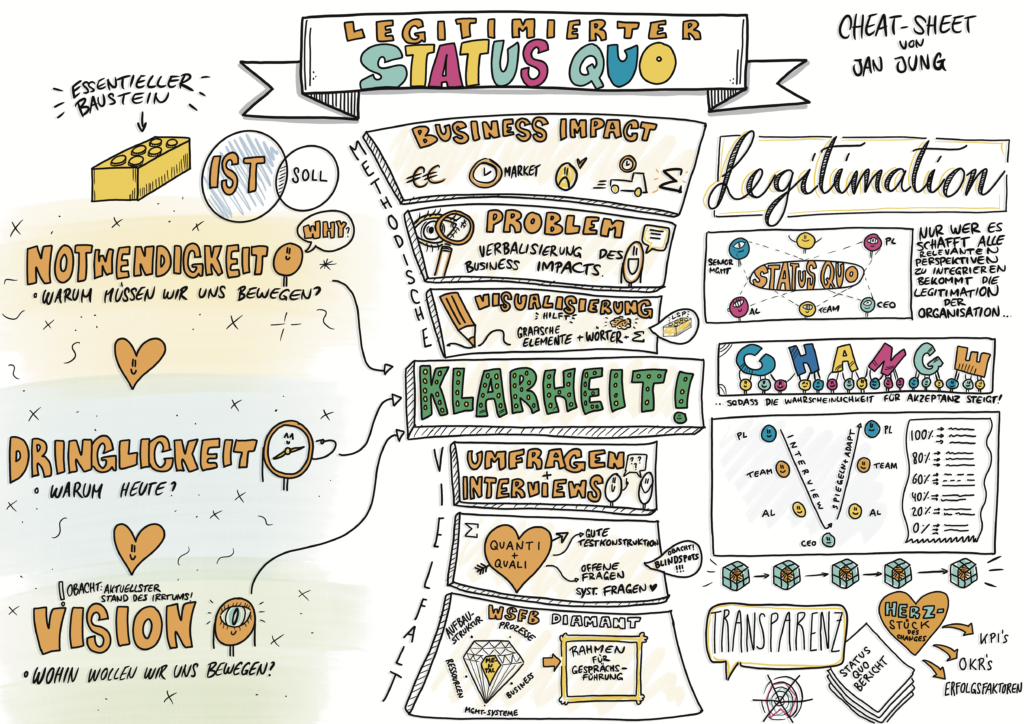 LEGITIMIERTER
STATUS QUO
CHEAT-SHEET
VON
JAN JUNG
ESSENTIELLER
BAUSTEIN
IST
SOLL
WHY?
NOTWENDIGKEIT
• WARUM MÜSSEN WIR UNS BEWEGEN?
DRINGLICKEIT
• WARUM HEUTE?
! OBACHT: AKTUELLSTER
STAND DES IRRTUMS!
VISION
• WOHIN WOLLEN WIR UNS BEWEGEN?
METHODISCHE
BUSINESS IMPACT
€€
MARKET
Σ
PROBLEM
VERBALISIERUNG DES
BUSINESS IMPACTS.
VISUALISIERUNG
HILFT
GRAFISCHE
ELEMENTE + WÖRTER = Σ
LSP
KLARHEIT!
VIELFALT
UMFRAGEN
+
INTERVIEWS
? ? ?
Σ
QUANTI
+
QUALI
GUTE
TESTKONSTRUKTION
OFFENE
FRAGEN
SYST. FRAGEN
OBACHT!
BLINDSPOTS
!!!
WSFB DIAMANT
AUFBAU-
STRUKTUR
PROZESSE
MENTAL
RESSOURCEN
BUSINESS
MGMT-SYSTEME
RAHMEN
FÜR
GESPRÄCHS-
FÜHRUNG
Legitimation
SENIOR
MGMT
PL
STATUS QUO
AL
TEAM
CEO
NUR WER ES
SCHAFFT ALLE
RELEVANTE
PERSPEKTIVEN
ZU INTEGRIEREN
BEKOMMT DIE
LEGITIMATION
DER
ORGANISATION...
CHANGE
...SODASS DIE WAHRSCHEINLICHKEIT FÜR AKZEPTANZ STEIGT!
PL
TEAM
AL
CEO
INTERVIEW
SPIEGELN + ADAPT
PL
TEAM
AL
100%
80%
60%
40%
20%
0%
TRANSPARENZ
STATUS
QUO
BERICHT
HERZ-
STÜCK
DES
CHANGES
KPI's
OKR's
ERFOLGSFAKTOREN